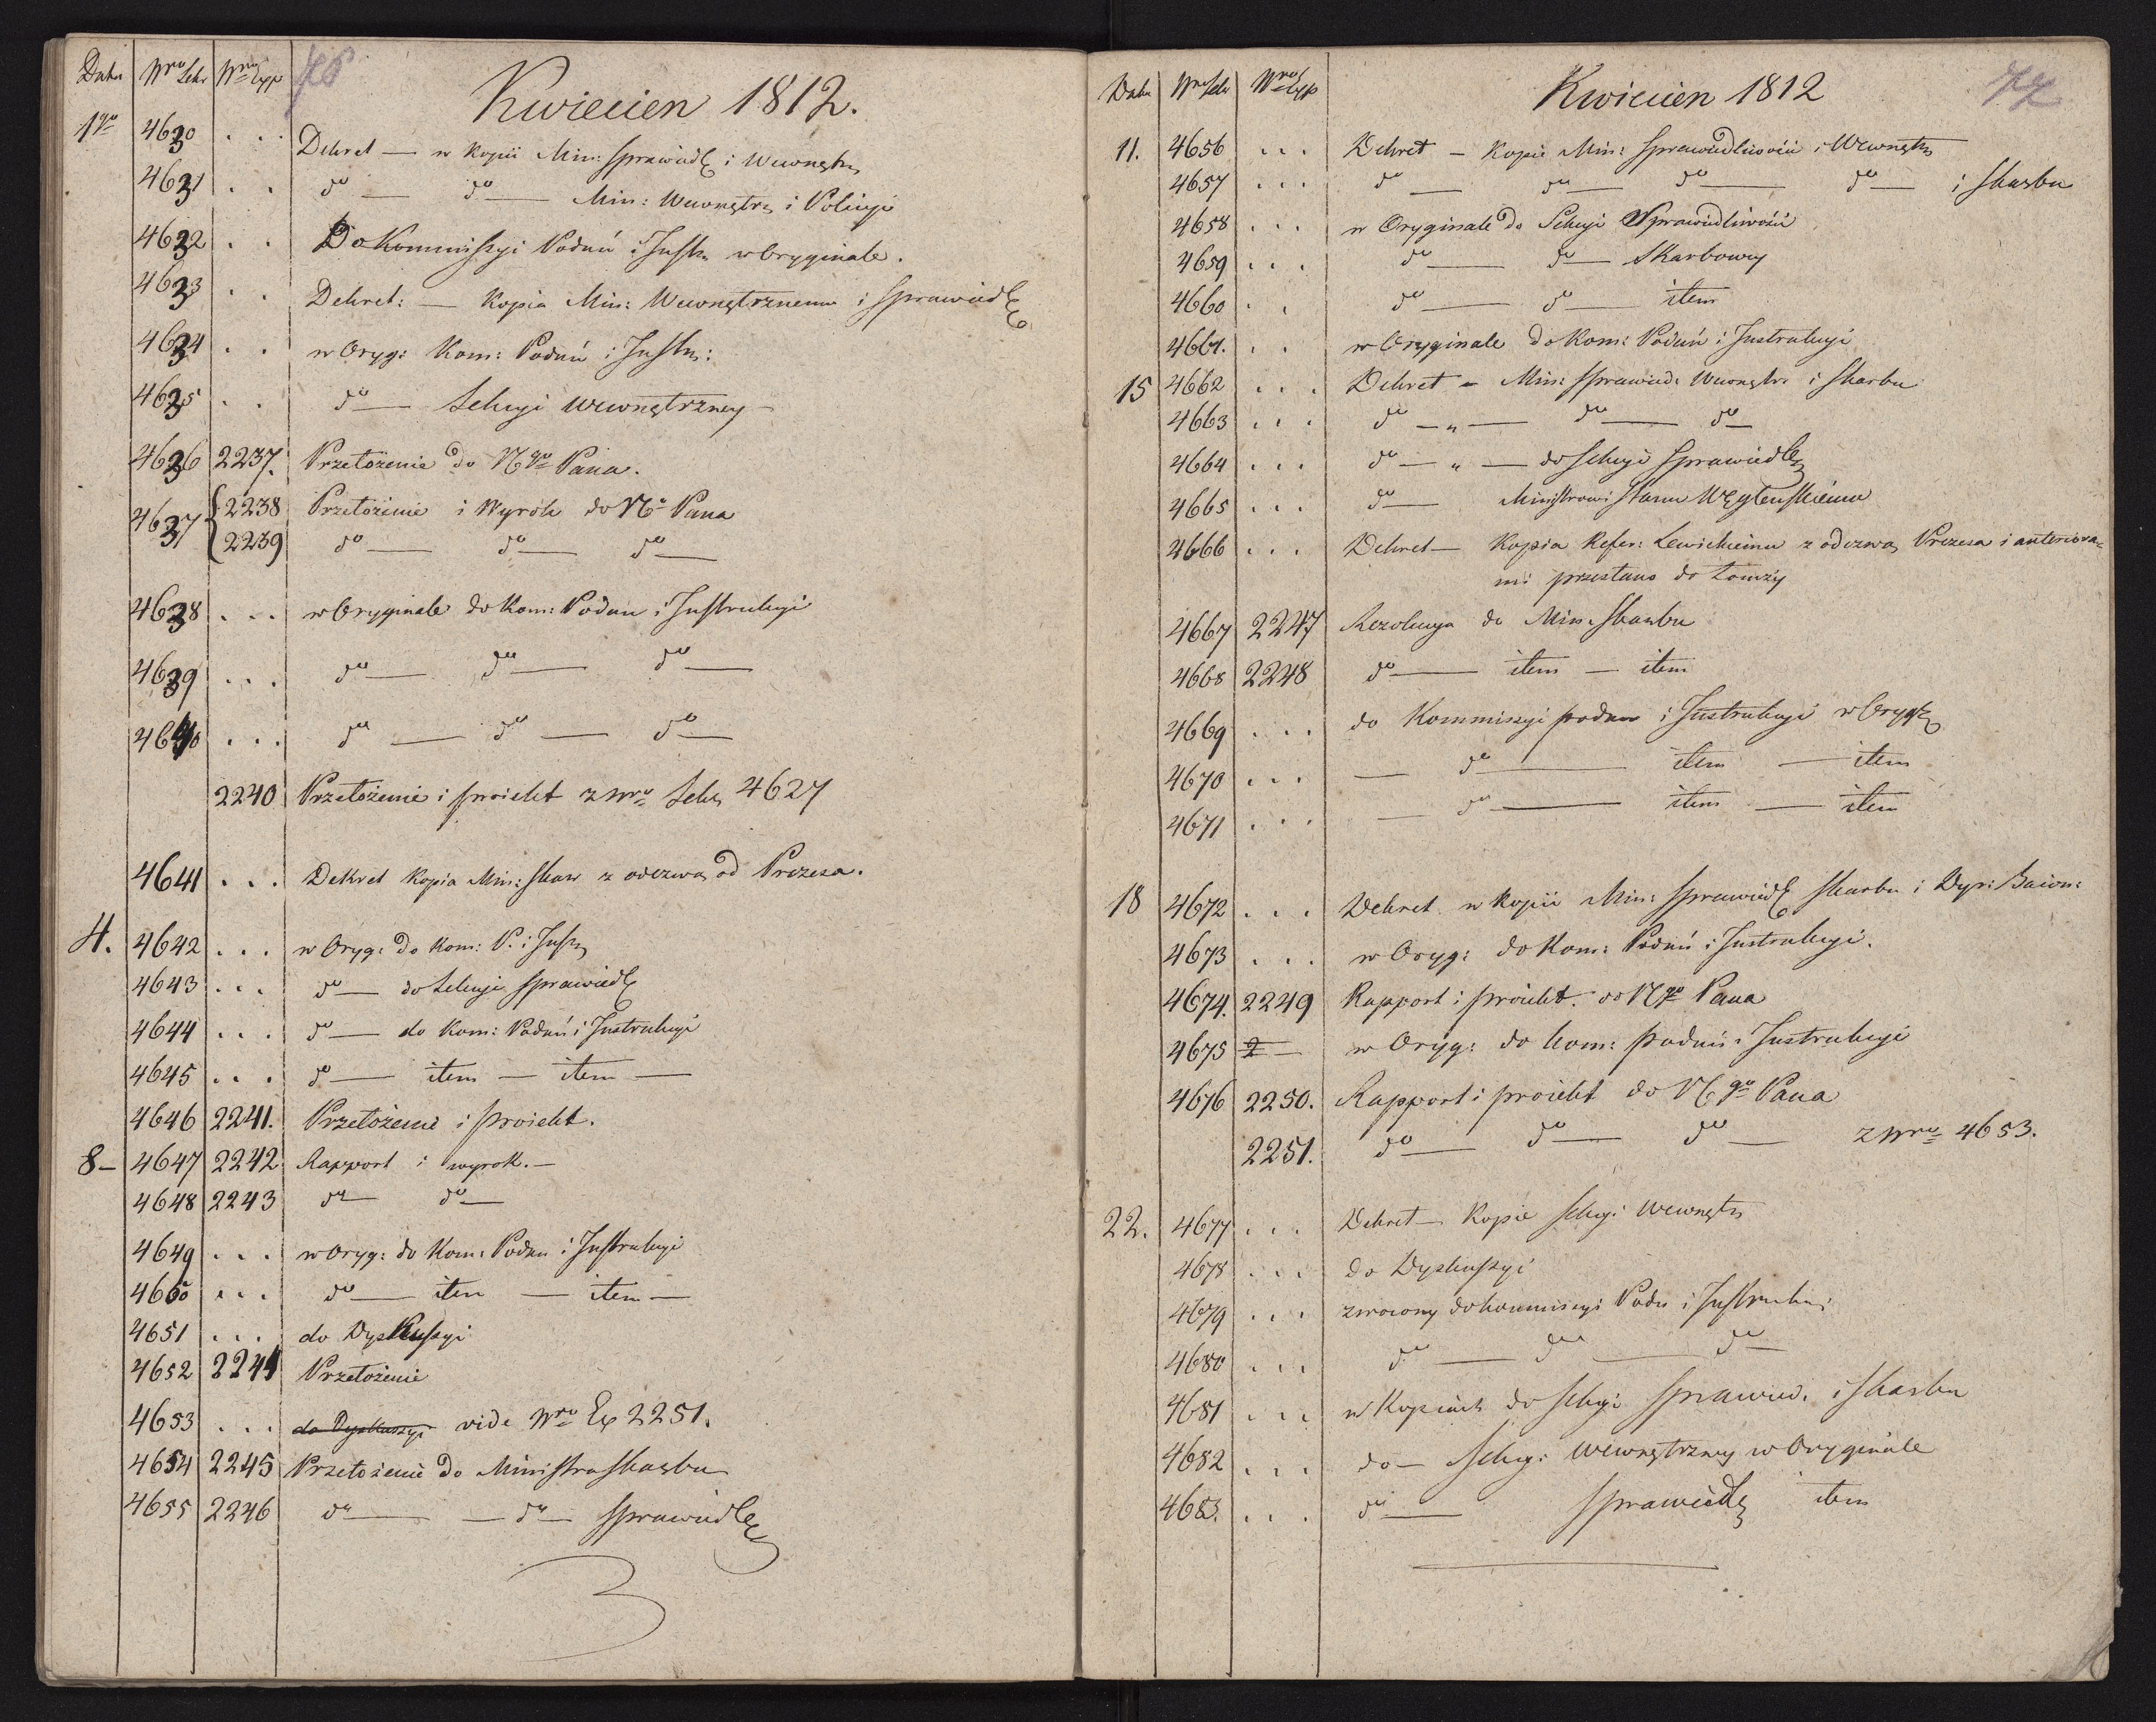 Data Nro Sekr Nro Exp 76
Kwiecien 1812.
1go 4630 . . . Dekret — w kopii Min: Sprawiedl: i Wewnętrz
4631 . . do — do — Min: Wewnętrz i Policyi
4632 . . Do Kommissyi Podań i Instr. w Oryginale.
4633 . . Dekret: — Kopia Min: Wewnętrznemu i Sprawiedl:
4634 . . w Oryg: Kom: Podań i Instr:
4635 . . do — Sekcyi Wewnętrzney —
4636 2237. Przełożenie do N go Pana.
4637 { 2238 Przełożenie i Wyrok do N o Pana
2239 do — do — do —
4638 . . . w Oryginale do Kom: Podan i Instrukcyi
4639 . . . do — do — do —
4640 . . . do — do — do —
2240 Przełożenie i proiekt z Nru Sekr 4627
4641 . . . Dekret kopia Min: Skar z odezwą od Prezesa.
4. 4642 . . . w Oryg: do Kom: P. i Instr
4643 . . . do — do Sekcyi Sprawiedl:
4644 . . . do — do Kom: Podań i Instrukcyi
4645 . . . do — item — item —
4646 2241. Przełożenie i proiekt.
8 — 4647 2242 Rapport i wyrok. —
4648 2243 do — do —
4649 . . . w Oryg: do Kom: Podan i Instrukcyi
4650 . . . do — item — item —
4651 . . . do Dyskussyi
4652 2244 Przełożenie
4653 . . . do Dyskussyi vide Nro Ex 2251.
4654 2245 Przełożenie do Ministra Skarbu
4655 2246 do — — do — Sprawiedl:
Data Nro Sekr Nro Exp Kwiecien 1812 77
11. 4656 . . . Dekret — Kopie Min: Sprawiedliwości i Wewnętrz
4657 . . . do — do — do — do — i Skarbu
4658 . . . w Oryginale do Sekcyi Sprawiedliwości
4659 . . . do — do — Skarbowey
4660 . . do — do — item
4661. . . w Oryginale do Kom: Podań i Instrukcyi
15 4662 . . . Dekret — Min: Sprawied: Wewnętr. i Skarbu
4663 . . . do — „ — do — do —
4664 . . . do — „ — do Sekcyi Sprawiedl:
4665 . . . do — Ministrowi Stanu Węgleńskiemu
4666 . . . Dekret — Kopia Refer: Lewickiemu z odezwą Prezesa i anteriora=
mi przesłano do Łomży
4667 2247 Rezolucya do Min. Skarbu
4668 2248 do — item — item
4669 . . . do Kommissyi podan i Instrukcyi w Oryg:
4670 . . . — do — item — item
4671 . . . — do — item — item
18 4672 . . . Dekret w kopii Min: Sprawiedl: Skarbu i Dyr:
4673 . . . w Oryg: do Kom: Podań i Instrukcyi.
4674. 2249 Rapport i proiekt. do N go Pana
4675 2 — w Oryg: do kom: podań i Instrukcyi
4676 2250. Rapport i proiekt do N go Pana
2251. do — do — do — z Nru 4653.
22. 4677 . . . Dekret — Kopie Sekcyi Wewnętrz
4678 . . . do Dyskussyi
4679 . . . zwrocony do kommissyi Podn i Instrukcyi
4680 . . . do — do — do —
4681 . . . w Kopiach do Sekcyi Sprawied. i Skarbu
4682 . . . do — Sekcy: Wewnętrzney w Oryginale
4683. . . . do — Sprawiedl: item